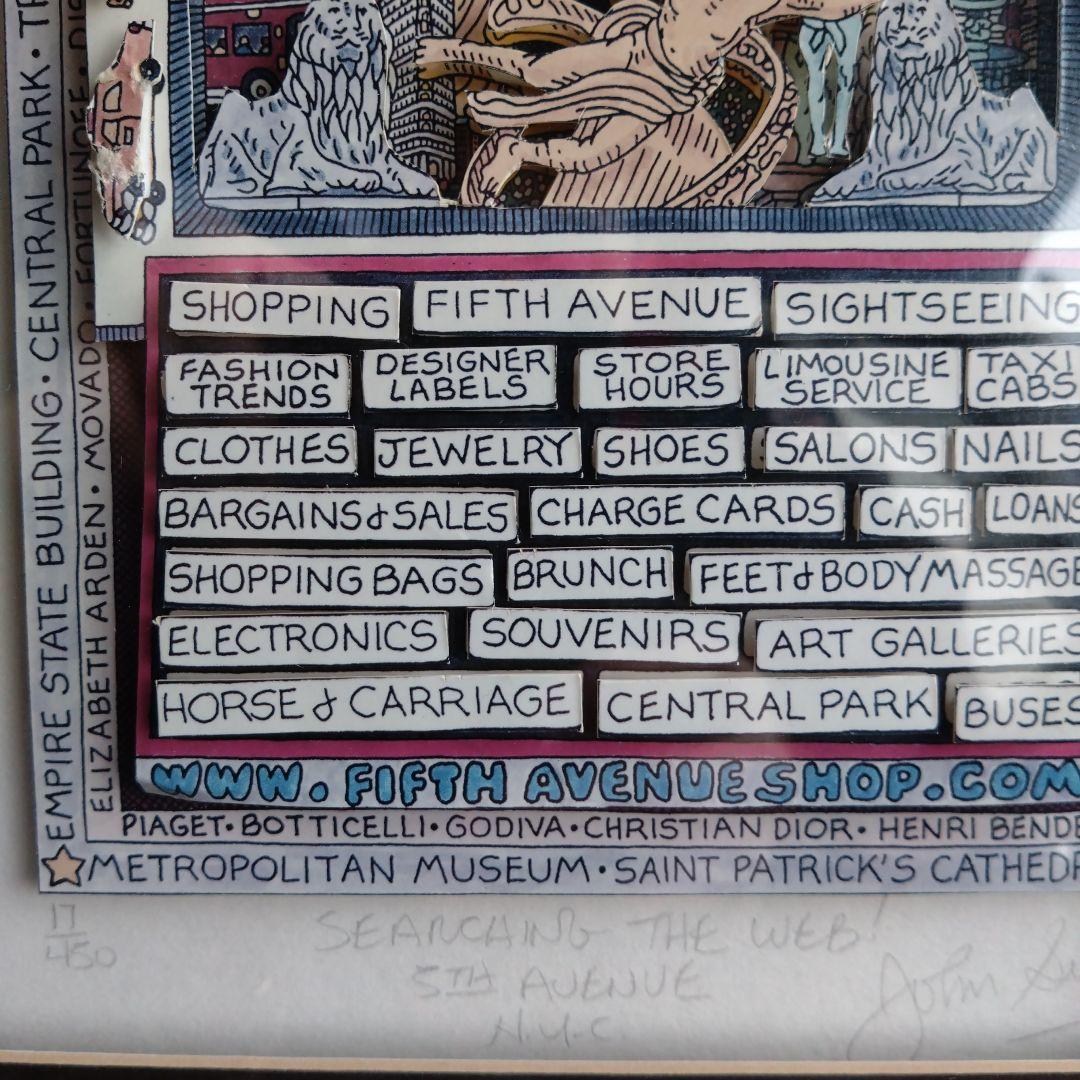 EMPIRE STATE BUILDING • CENTRAL PARK •
ELIZABETH ARDEN • MOVADO • FORTUNOFF •
SHOPPING FIFTH AVENUE SIGHTSEEING
FASHION TRENDS DESIGNER LABELS STORE HOURS LIMOUSINE SERVICE TAXI CABS
CLOTHES JEWELRY SHOES SALONS NAILS
BARGAINS & SALES CHARGE CARDS CASH LOANS
SHOPPING BAGS BRUNCH FEET & BODY MASSAGE
ELECTRONICS SOUVENIRS ART GALLERIES
HORSE & CARRIAGE CENTRAL PARK BUSES
WWW.FIFTH AVENUESHOP.COM
PIAGET • BOTTICELLI • GODIVA • CHRISTIAN DIOR • HENRI BENDE
METROPOLITAN MUSEUM • SAINT PATRICK'S CATHEDR
17/450
SEARCHING THE WEB!
5TH AVENUE
N.Y.C.
John